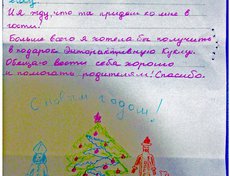 И я жду, что ты придёшь ко мне в
гости!
Больше всего я хотела бы получить
в подарок Интерактивную Куклу.
Обещаю вести себя хорошо
и помогать родителям! Спасибо.
С новым годом!